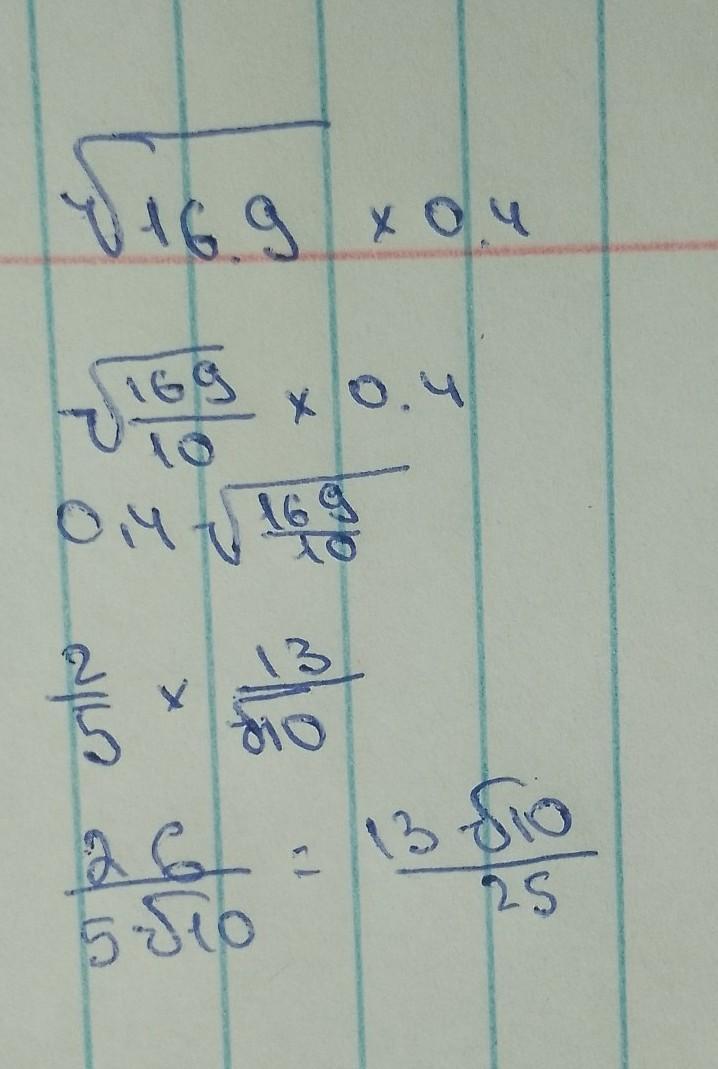 √16.9 × 0.4
√(169/10) × 0.4
0.4 √(169/10)
2/5 × 13/√10
26/(5√10) = 13√10/25